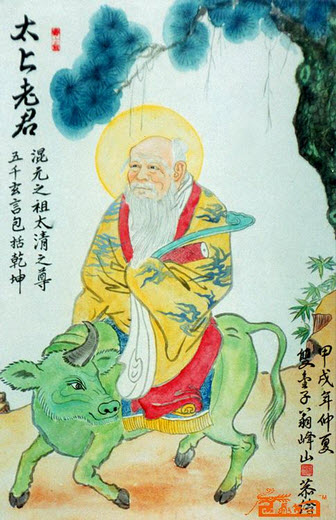 太上老君
混元之祖太清之尊
五千玄言包括乾坤
甲戌年仲夏
翁峰山
恭绘